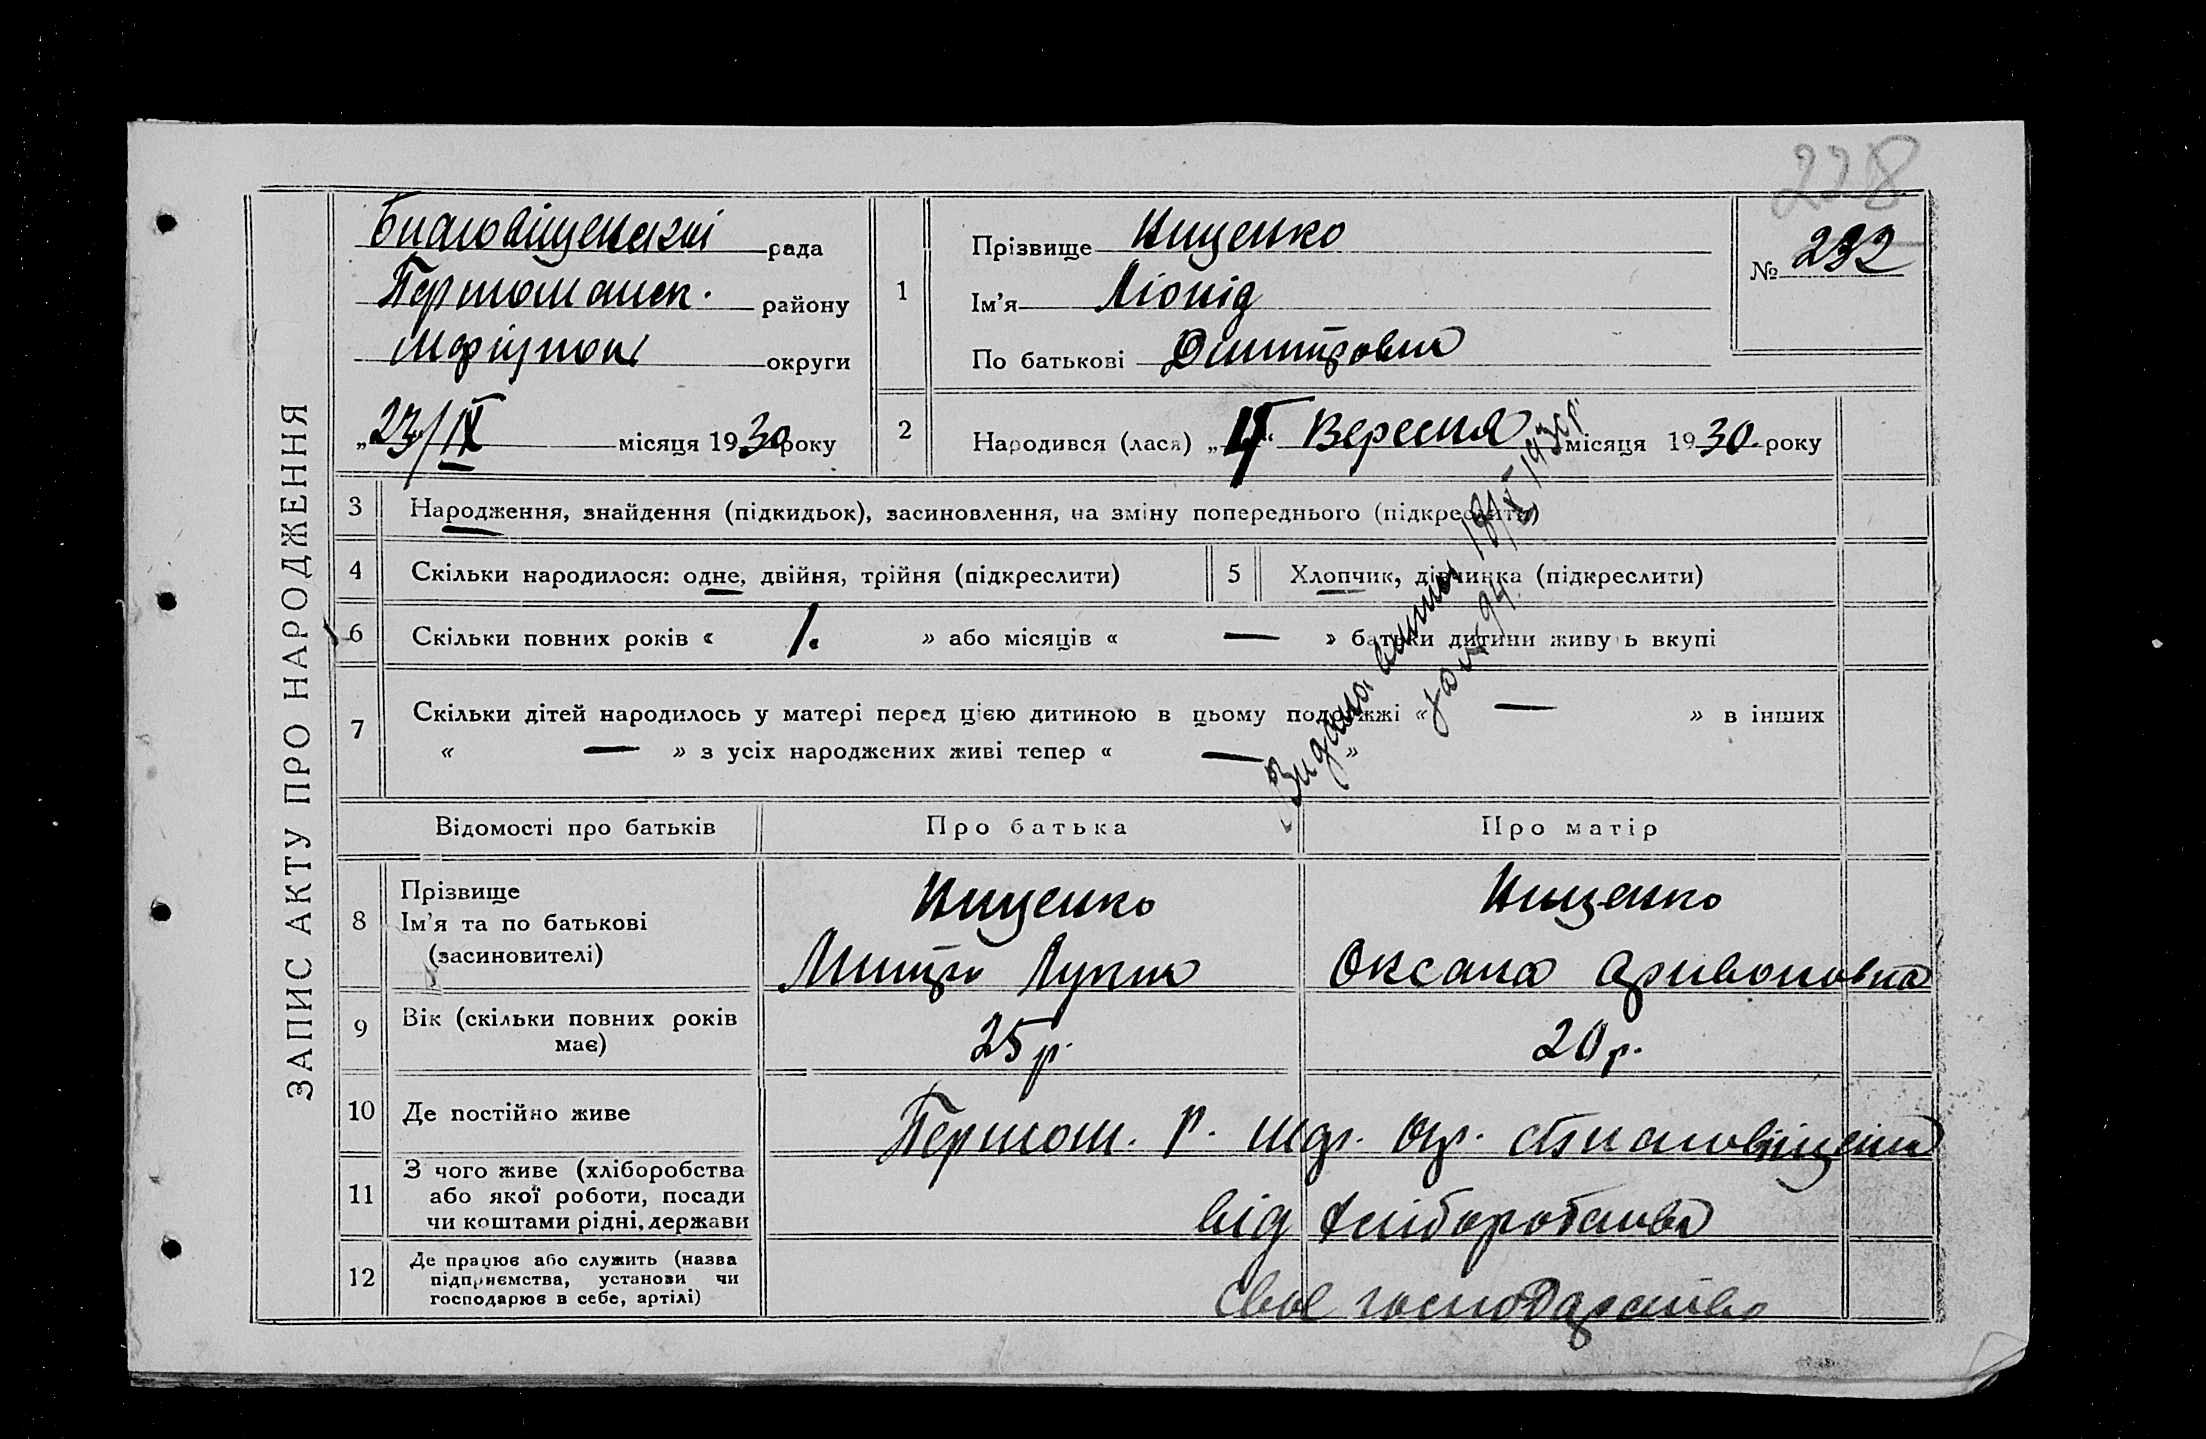 228
ЗАПИС АКТУ ПРО НАРОДЖЕННЯ
рада
району
округи
„23/IX місяця 1930 року
1
Прізвище Нищенко
Ім'я Ліонід
По батькові
№ 232
2
Народився (лася) „ “ Вересня місяця 1930 року
3 Народження, знайдення (підкидьок), засиновлення, на зміну попереднього (підкреслити)
4 Скільки народилося: одне, двійня, трійня (підкреслити)
5 Хлопчик, дівчинка (підкреслити)
6 Скільки повних років « 1. » або місяців « — » батьки дитини живуть вкупі
7 Скільки дітей народилось у матері перед цією дитиною в цьому подружжі « — » в інших
« — » з усіх народжених живі тепер « — »
Відомості про батьків
Про батька
Про матір
8
Прізвище
Ім'я та по батькові
(засиновителі)
Нищенко
Нищенко
Оксана
9 Вік (скільки повних років
має)
25 р.
20 р.
10 Де постійно живе
11
З чого живе (хліборобства
або якої роботи, посади
чи коштами рідні, держави
від хліборобства
12
Де працює або служить (назва
підприємства, установи чи
господарює в себе, артілі)
Своє господарство